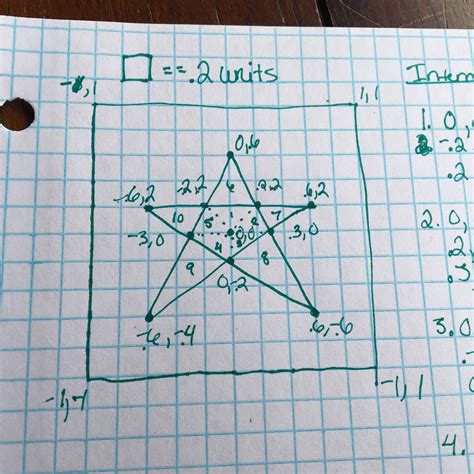 □ == .2 units
Intern
-1, 1
1, 1
1. 0,
-.2
.2
0, .6
-.6, .2
-.2, .2
6
.2, .2
.6, .2
10
5
7
2. 0,
.2,
.3
-.3, 0
0, 0
.3, 0
4
9
8
0, -.2
-.6, -.4
.6, -.6
3. 0
-1, -1
-1, 1
4.